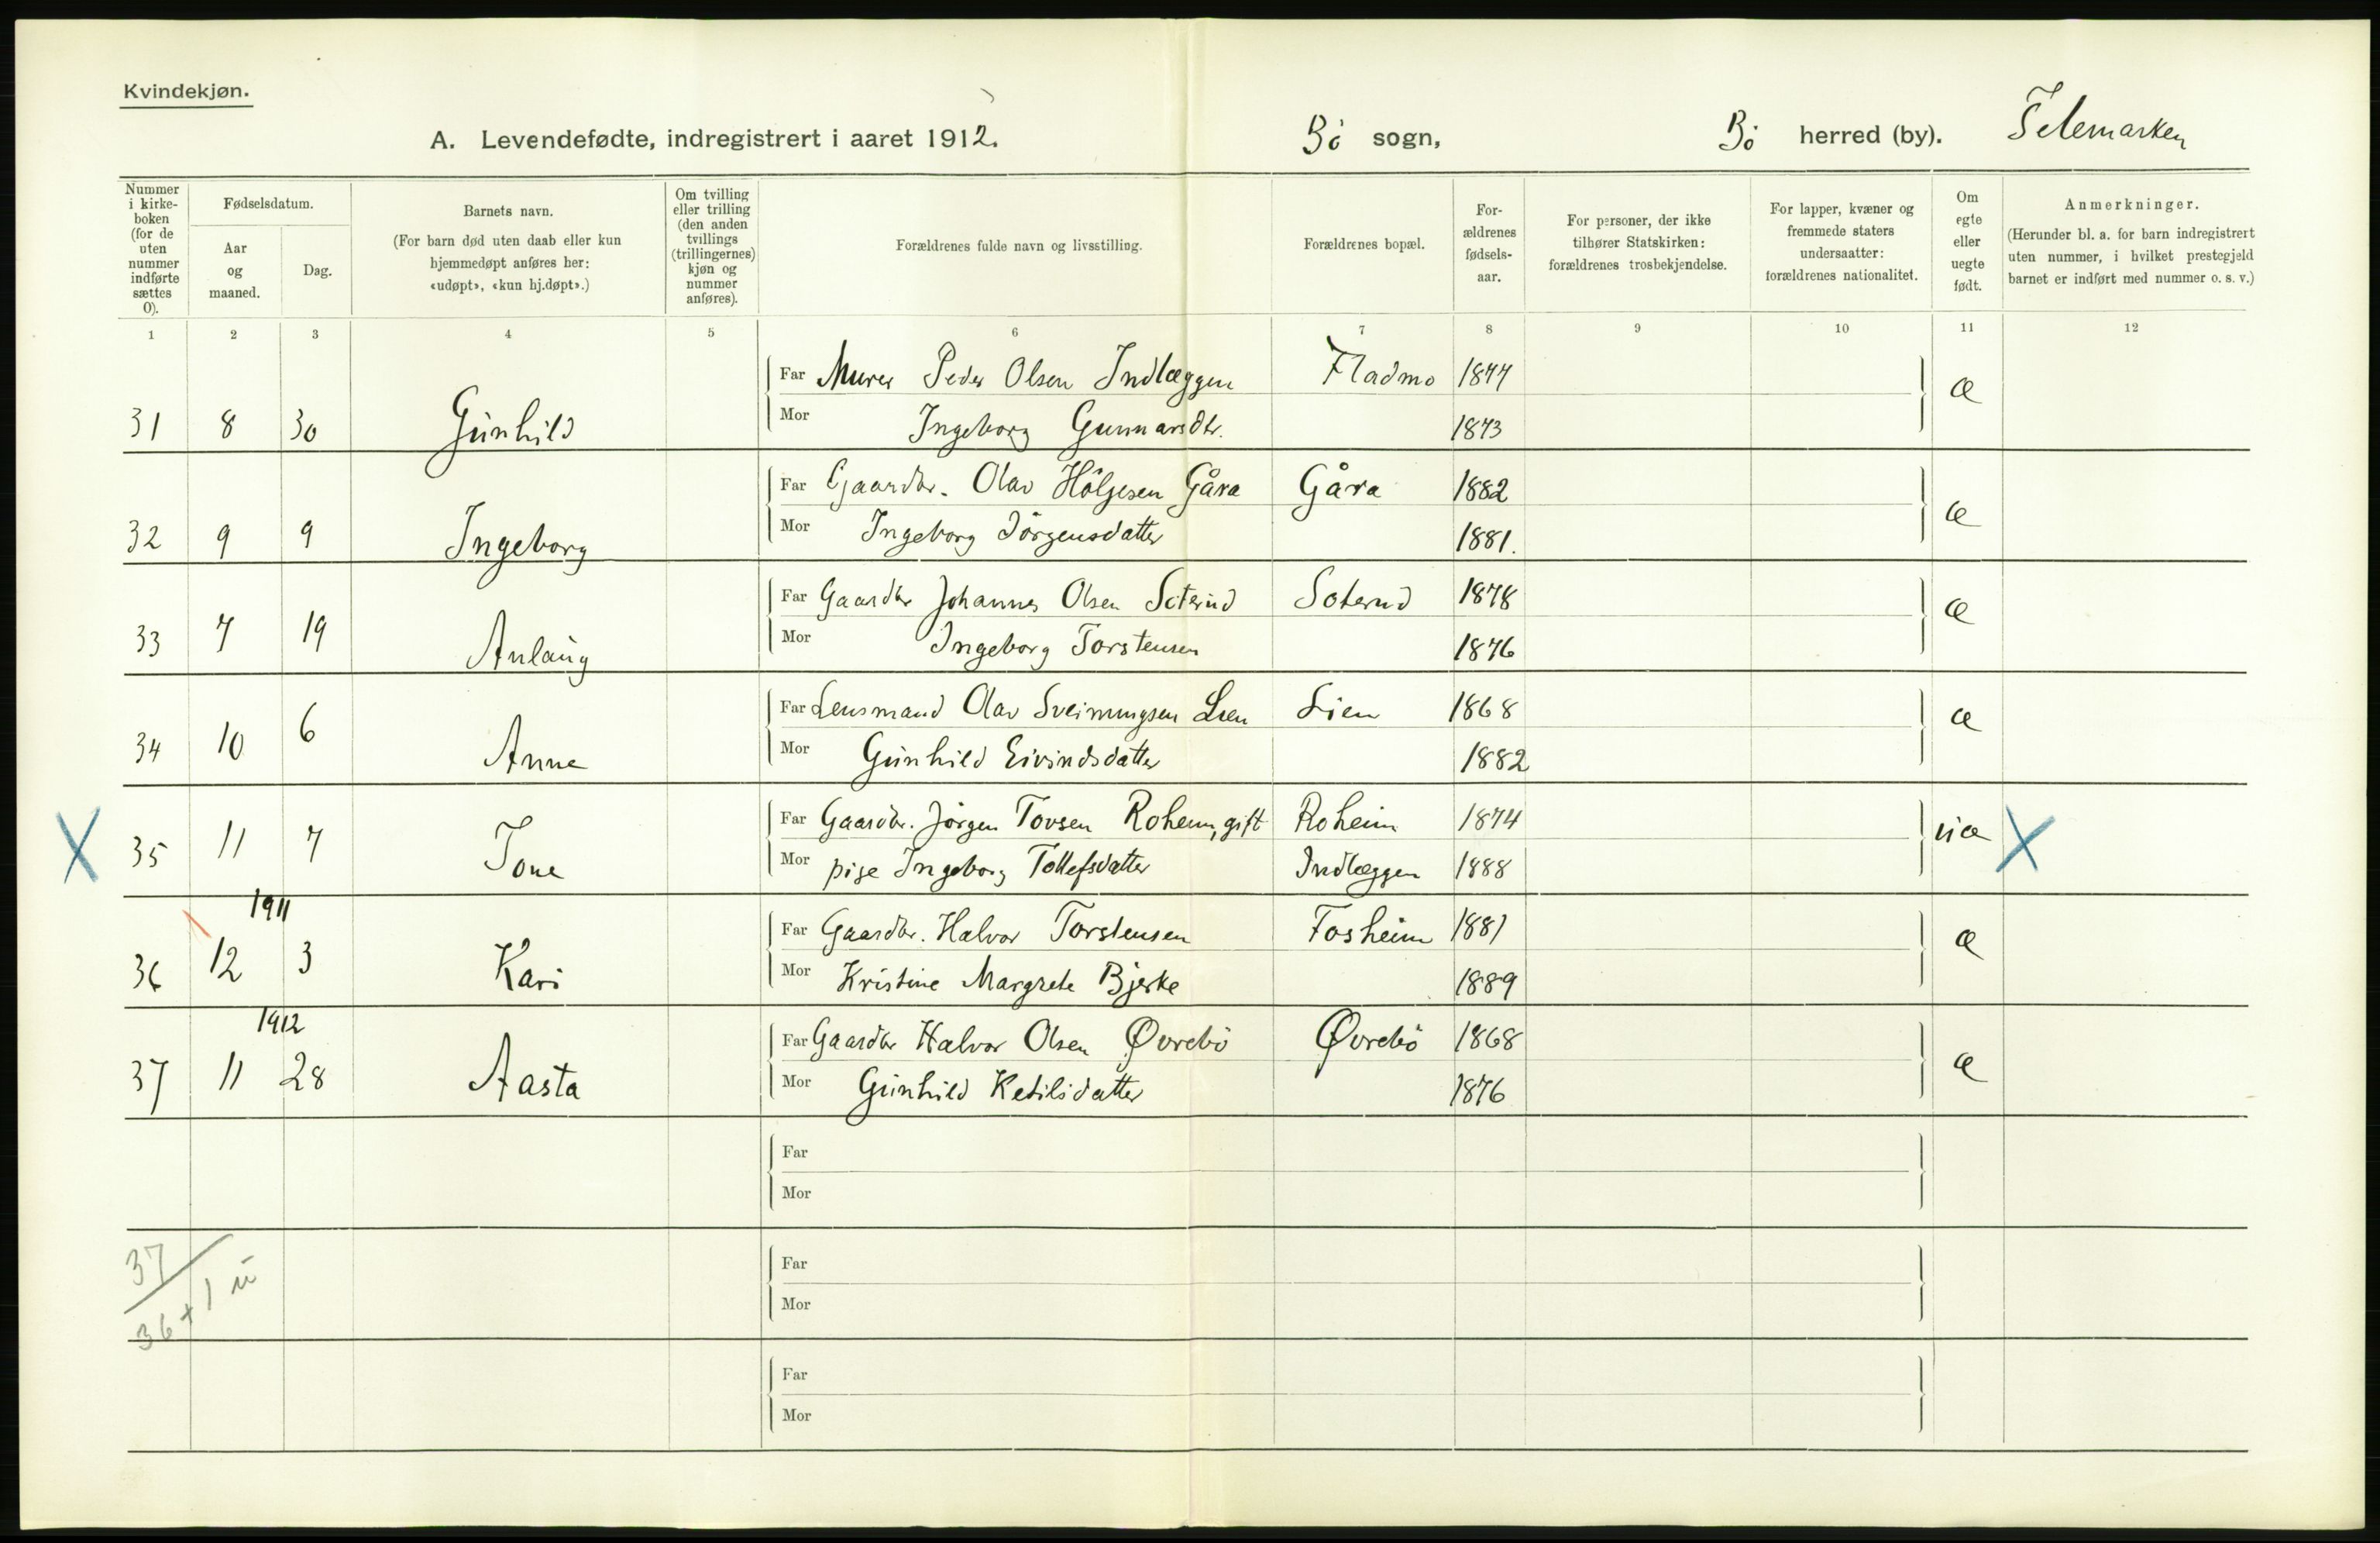 Kvindekjøn.
A. Levendefødte, indregistrert i aaret 1912. Bö sogn, Bö herred (by). Telemarken
Nummer i kirke-boken (for de uten nummer indførte sættes 0).
Fødselsdatum.
Aar og maaned.
Dag.
Barnets navn.
(For barn død uten daab eller kun hjemmedøpt anføres her: «udøpt», «kun hj.døpt».)
Om tvilling eller trilling (den anden tvillings (trillingernes) kjøn og nummer anføres).
Forældrenes fulde navn og livsstilling.
Forældrenes bopæl.
For-ældrenes fødsels-aar.
For personer, der ikke tilhører Statskirken: forældrenes trosbekjendelse.
For lapper, kvæner og fremmede staters undersaatter: forældrenes nationalitet.
Om egte eller uegte født.
Anmerkninger.
(Herunder bl. a. for barn indregistrert uten nummer, i hvilket prestegjeld barnet er indført med nummer o. s. v.)
1 2 3 4 5 6 7 8 9 10 11 12
Far Murer Peder Olsen Indlæggen Fladmo 1877
31 8 30 Gunhild Mor Ingeborg Gunnarsdtr. 1873 æ
Far Gaardbr. Olav Hölgesen Gåra Gåra 1882
32 9 9 Ingeborg Mor Ingeborg Jörgensdatter 1881. æ
Far Gaardbr Johannes Olsen Soterud Soterud 1878
33 7 19 Anlaug Mor Ingeborg Torstensen 1876 æ
Far Lensmand Olav Sveinungsen Lien Lien 1868
34 10 6 Anne Mor Gunhild Eivindsdatter 1882 æ
Far Gaardbr. Jörgen Tovsen Roheim, gift Roheim 1874
35 11 7 Tone Mor pige Ingeborg Tollefsdatter Indlæggen 1888 uæ
1911
Far Gaardbr. Halvor Torstensen Fosheim 1881
36 12 3 Kari Mor Kristine Margrete Bjerke 1889 æ
1912
Far Gaardbr Halvor Olsen Øvrebö Øvrebö 1868
37 11 28 Aasta Mor Gunhild Ketilsdatter 1876 æ
Far
Mor
37
36 + 1 u
Far
Mor
Far
Mor